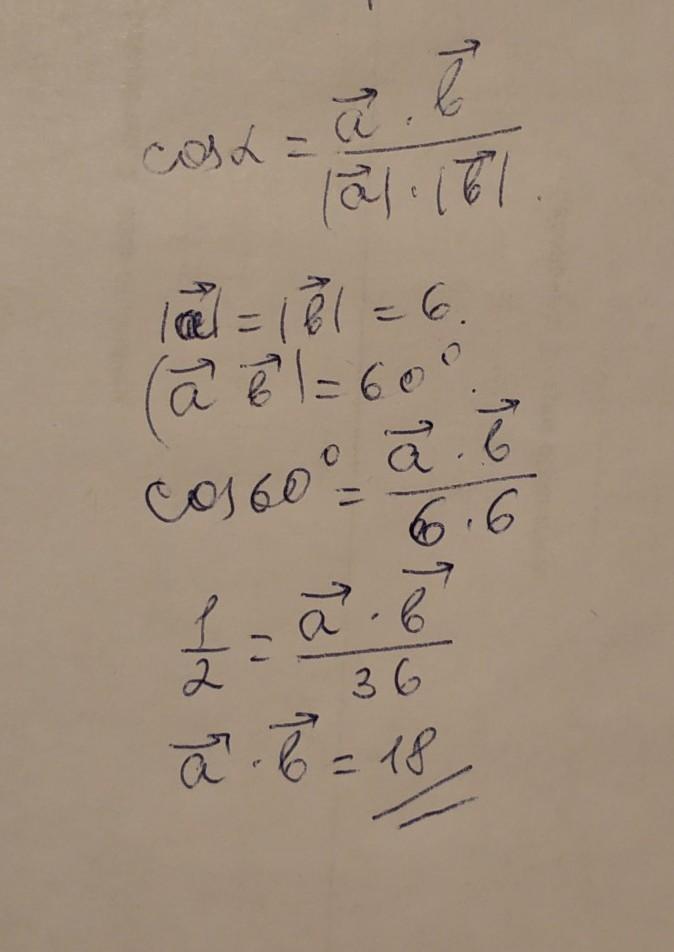 cos α = (a⃗ · b⃗) / (|a⃗| · |b⃗|).
|a⃗| = |b⃗| = 6.
(a⃗ b⃗) = 60°.
cos 60° = (a⃗ · b⃗) / (6 · 6)
1/2 = (a⃗ · b⃗) / 36
a⃗ · b⃗ = 18